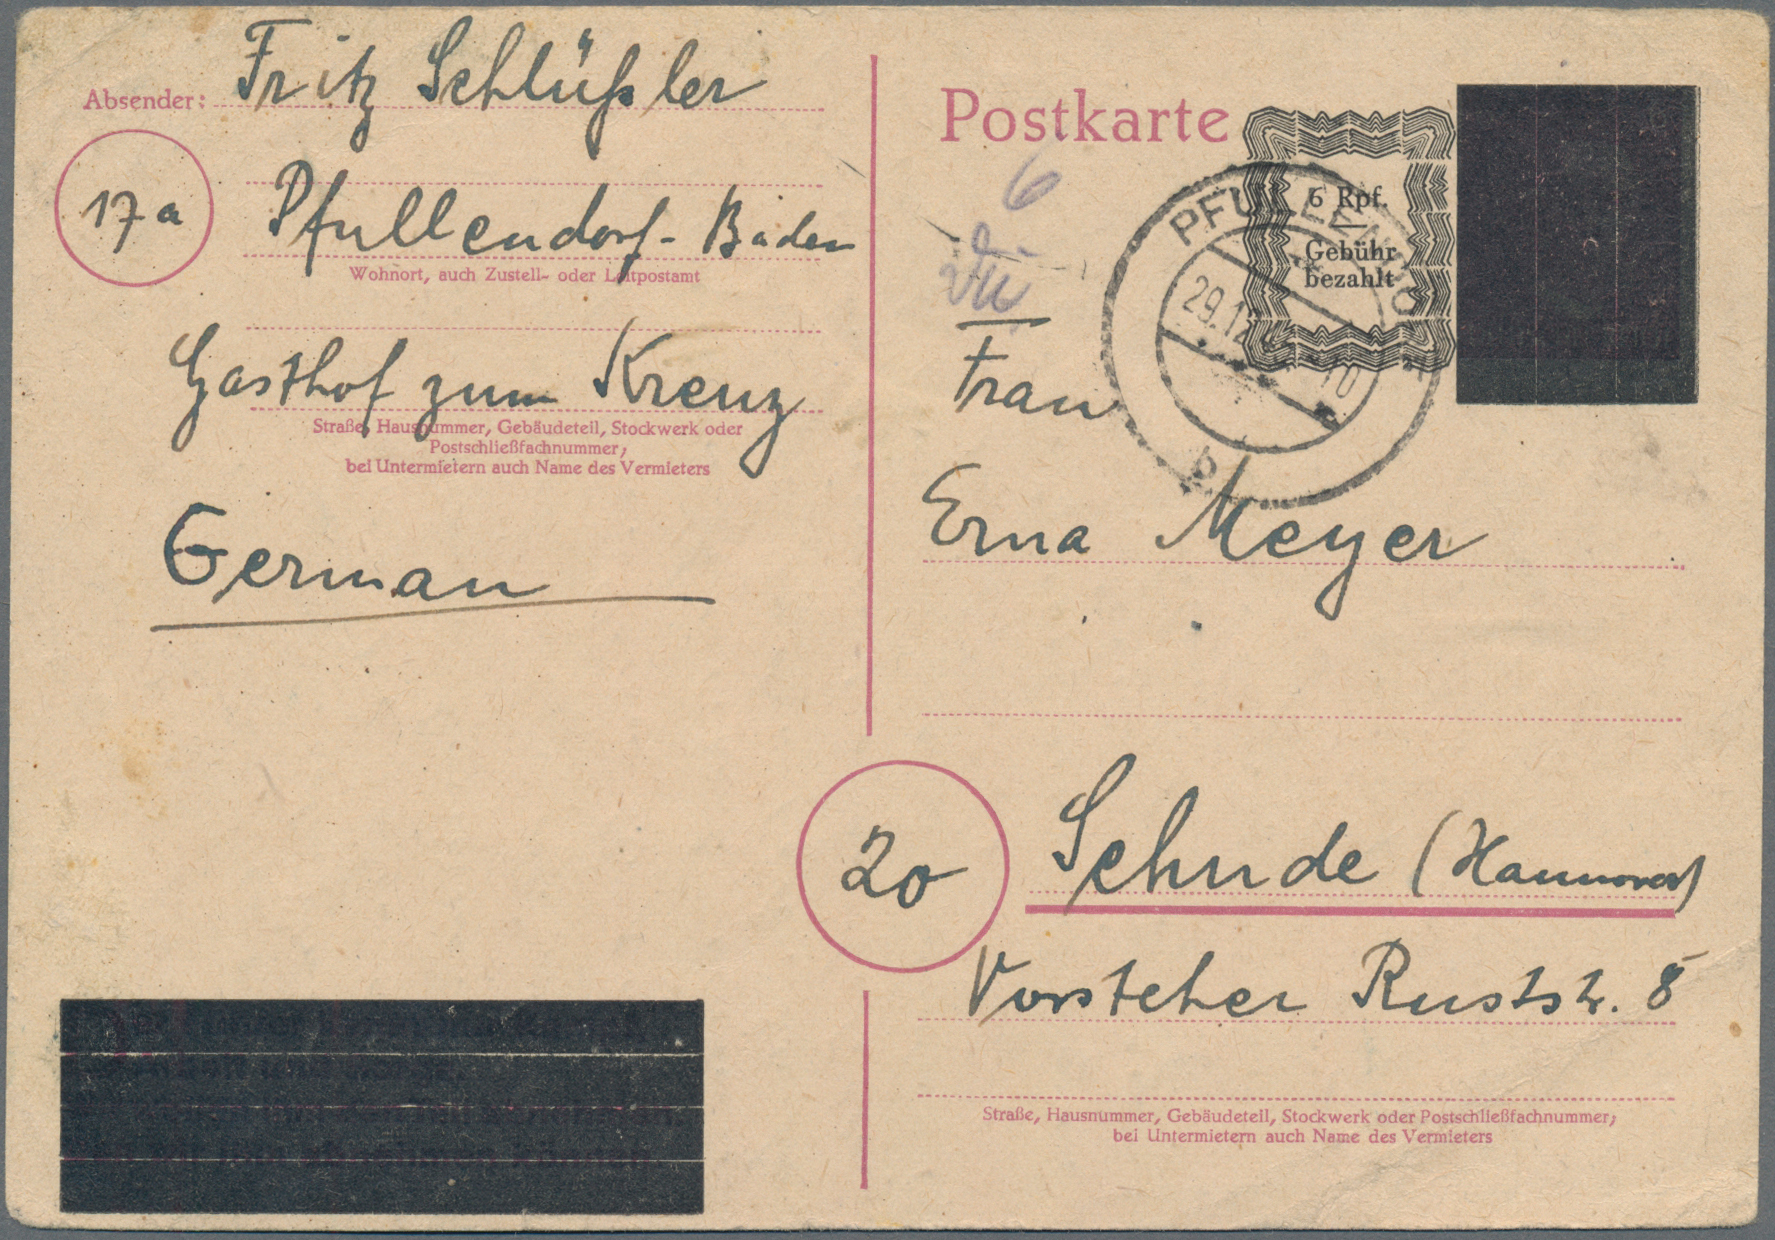 Absender: Fritz Schlüßler
17a
Pfullendorf - Baden
Wohnort, auch Zustell- oder Leitpostamt
Gasthof zum Kreuz
Straße, Hausnummer, Gebäudeteil, Stockwerk oder
Postschließfachnummer,
bei Untermietern auch Name des Vermieters
German
Postkarte
6 Rpf.
Gebühr
bezahlt
PFULLENDORF
29.12
10
b
6
Frau
Erna Meyer
20
Sehnde (Hannover)
Vorsteher Ruststr. 8
Straße, Hausnummer, Gebäudeteil, Stockwerk oder Postschließfachnummer;
bei Untermietern auch Name des Vermieters